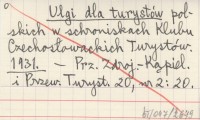 Ulgi dla turystów pol-
skich w schroniskach Klubu
Czechosłowackich Turystów.
1931. — Prz. Zdroj.-Kąpiel.
i Przew. Turyst. 20, nr 2: 20.